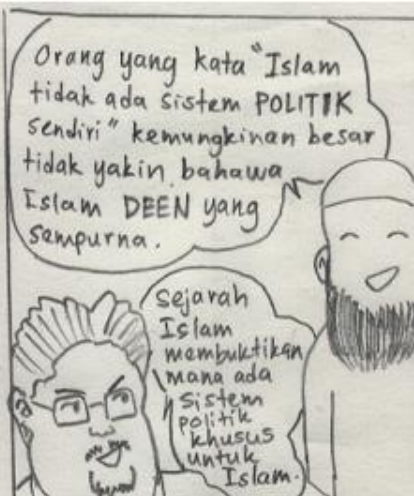 Orang yang kata "Islam
tidak ada sistem POLITIK
sendiri" kemungkinan besar
tidak yakin bahawa
Islam DEEN yang
sempurna.
sejarah
Islam
membuktikan
mana ada
sistem
politik
khusus
untuk
Islam.